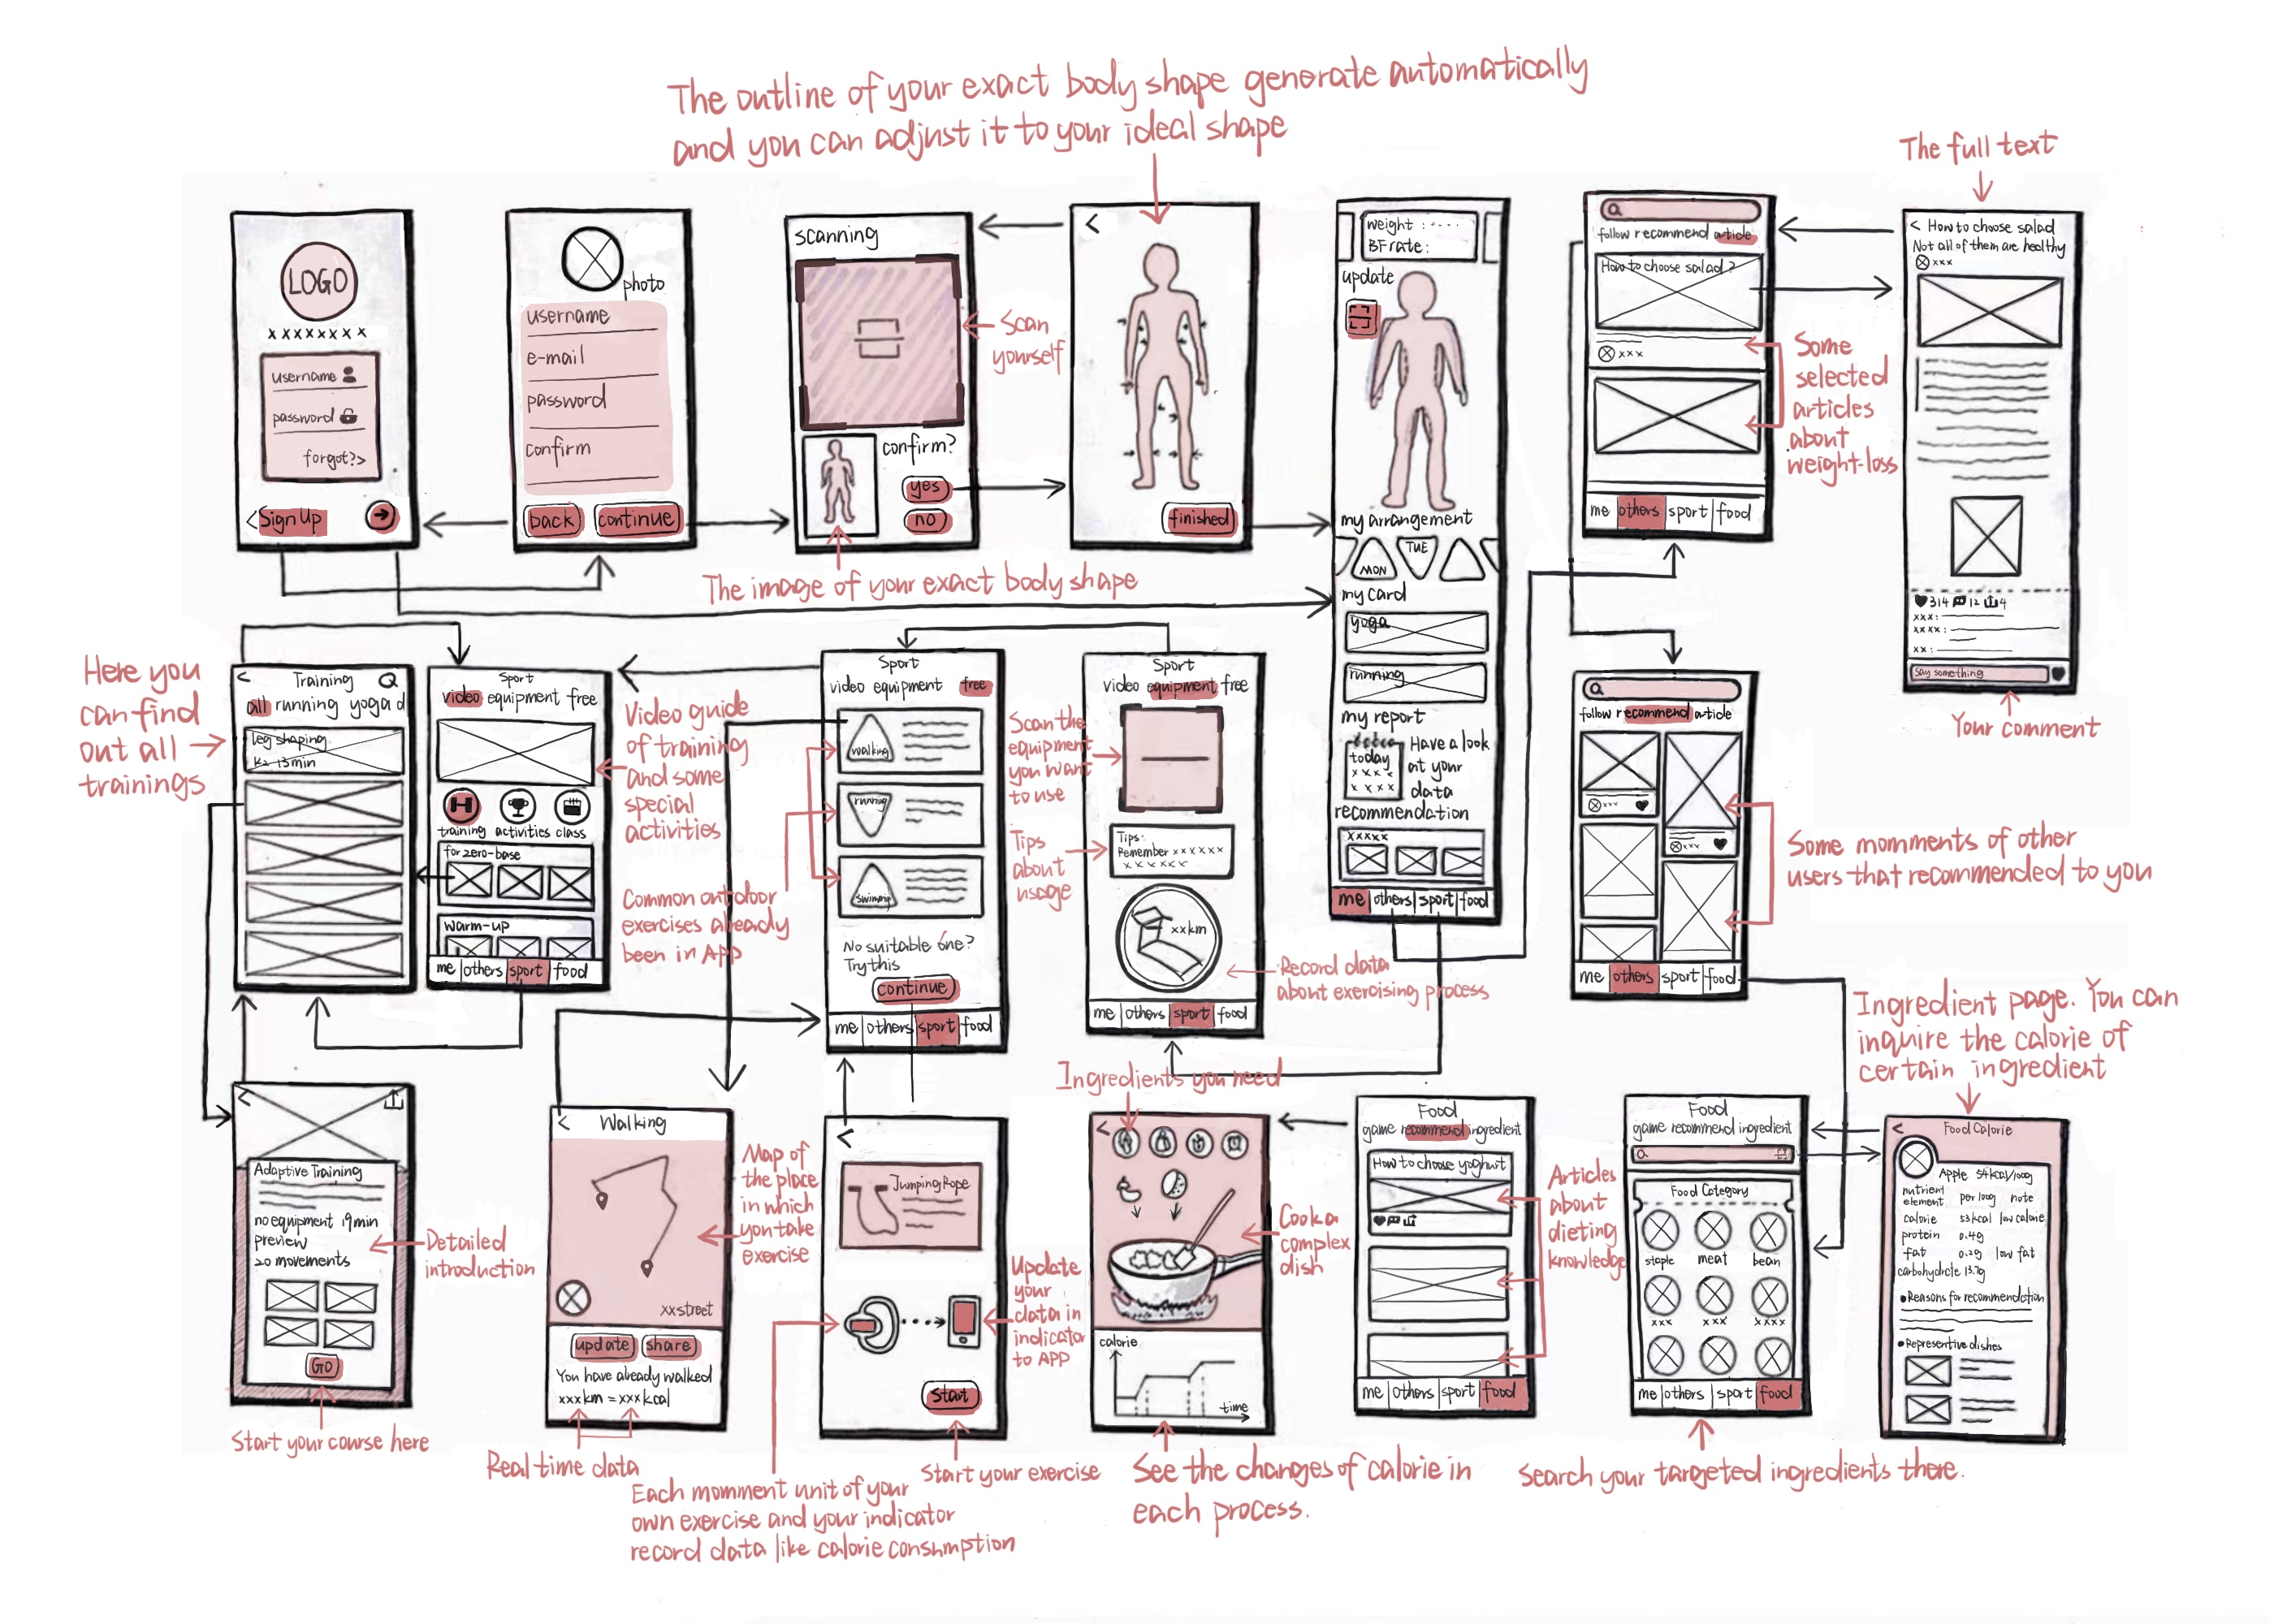 The outline of your exact body shape generate automatically
and you can adjust it to your ideal shape
The full text
LOGO
xxxxxxxx
username
password
forgot?>
<Sign Up
photo
username
e-mail
password
confirm
back
continue
scanning
confirm?
yes
no
Scan
yourself
The image of your exact body shape
<
finished
weight : ----
BF rate:
update
my arrangement
MON
TUE
my card
yoga
running
my report
today
xxxx
xxxx
Have a look
at your
data
recommendation
xxxxx
me others sport food
follow recommend article
How to choose salad?
xxx
me others sport food
Some
selected
articles
about
weight-loss
< How to choose salad
Not all of them are healthy
xxx
314 12 4
xxx:
xxxx:
xx:
Say something
Your comment
Here you
can find
out all
trainings
< Training
all running yoga d
leg shaping
K2 13min
Sport
video equipment free
training activities class
for zero-base
warm-up
me others sport food
Video guide
of training
and some
special
activities
Common outdoor
exercises already
been in APP
Sport
video equipment free
walking
running
swimming
No suitable one?
Try this
continue
me others sport food
Scan the
equipment
you want
to use
Tips
about
usage
Sport
video equipment free
Tips:
Remember xxxxxx
xxxxxx
xxkm
me others sport food
Record data
about exercising process
follow recommend article
xxx
xxx
me others sport food
Some momments of other
users that recommended to you
Ingredient page. You can
inquire the calorie of
certain ingredient
<
Adaptive Training
no equipment 19min
preview
20 movements
GO
Detailed
introduction
Start your course here
< Walking
xxstreet
update
share
You have already walked
xxxkm = xxxkcal
Real time data
Map of
the place
in which
you take
exercise
<
Jumping Rope
Start
Update
your
data in
indicator
to APP
Start your exercise
Each momment unit of your
own exercise and your indicator
record data like calorie consumption
Ingredients you need
<
calorie
time
Cook a
complex
dish
See the changes of calorie in
each process.
Food
game recommend ingredient
How to choose yoghurt
me others sport food
Articles
about
dieting
knowledge
Food
game recommend ingredient
Food Category
staple meat bean
xxx xxx xxxx
me others sport food
Search your targeted ingredients there.
< Food Calorie
Apple 54kcal/100g
nutrient
element
per 100g note
calorie 53kcal low calorie
protein 0.4g
fat 0.2g low fat
carbohydrate 13.7g
•Reasons for recommendation
•Representive dishes